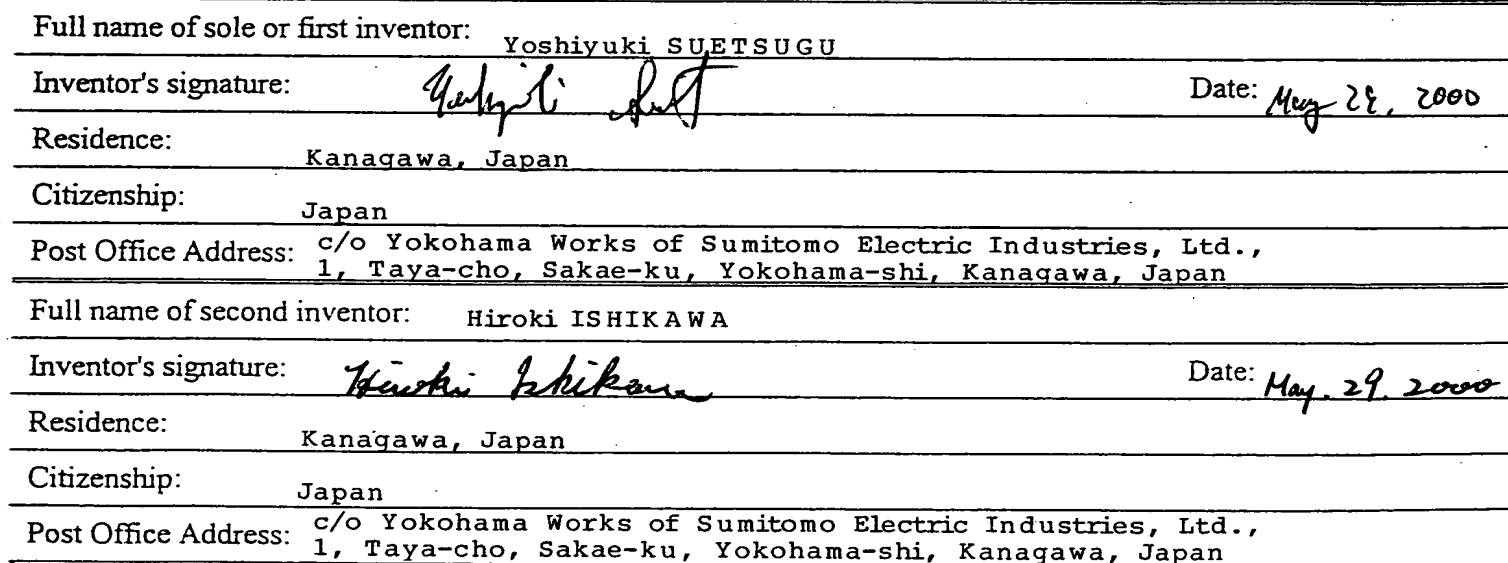 Full name of sole or first inventor: Yoshiyuki SUETSUGU
Inventor's signature: Date: May 29, 2000
Residence: Kanagawa, Japan
Citizenship: Japan
Post Office Address: c/o Yokohama Works of Sumitomo Electric Industries, Ltd.,
1, Taya-cho, Sakae-ku, Yokohama-shi, Kanagawa, Japan
Full name of second inventor: Hiroki ISHIKAWA
Inventor's signature: Hiroki Ishikawa Date: May. 29. 2000
Residence: Kanagawa, Japan
Citizenship: Japan
Post Office Address: c/o Yokohama Works of Sumitomo Electric Industries, Ltd.,
1, Taya-cho, Sakae-ku, Yokohama-shi, Kanagawa, Japan